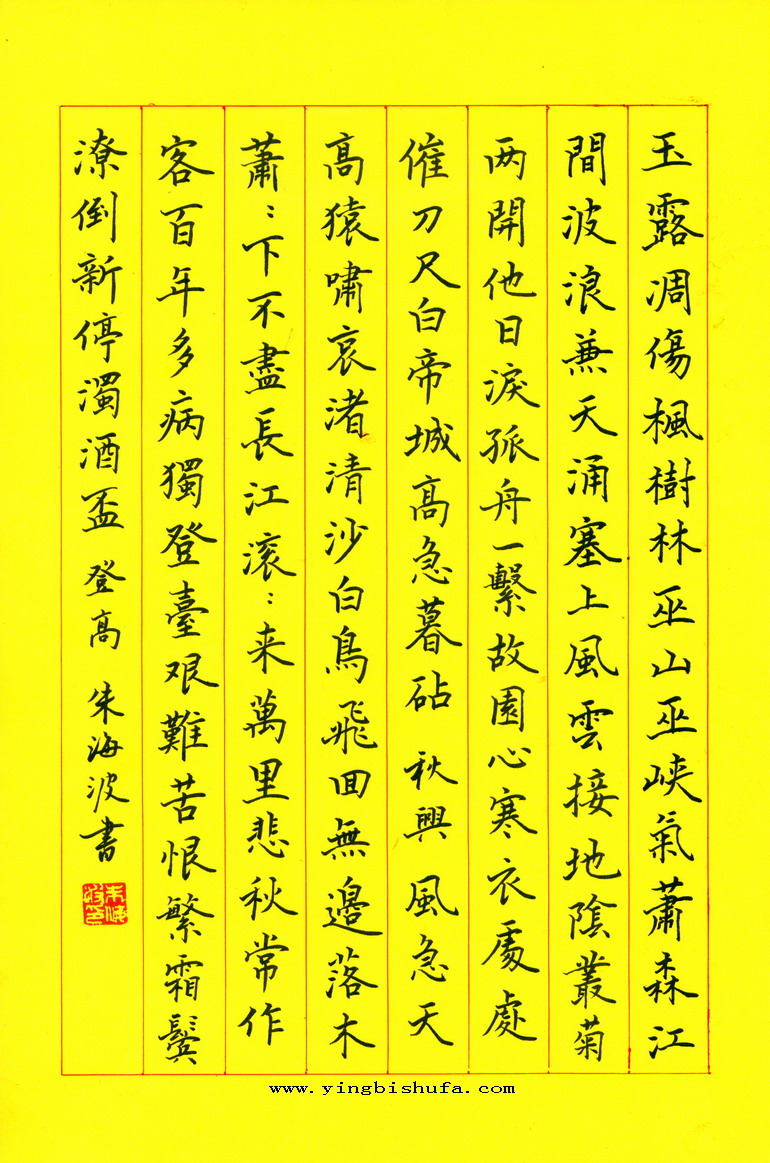 玉露凋傷楓樹林巫山巫峽氣蕭森江
間波浪兼天涌塞上風雲接地陰叢菊
两開他日淚孤舟一繫故園心寒衣處處
催刀尺白帝城高急暮砧 秋興 風急天
高猿嘯哀渚清沙白鳥飛回無邊落木
蕭:下不盡長江滚:来萬里悲秋常作
客百年多病獨登臺艰難苦恨繁霜鬓
潦倒新停濁酒盃 登高 朱海波書
朱海波印
www.yingbishufa.com